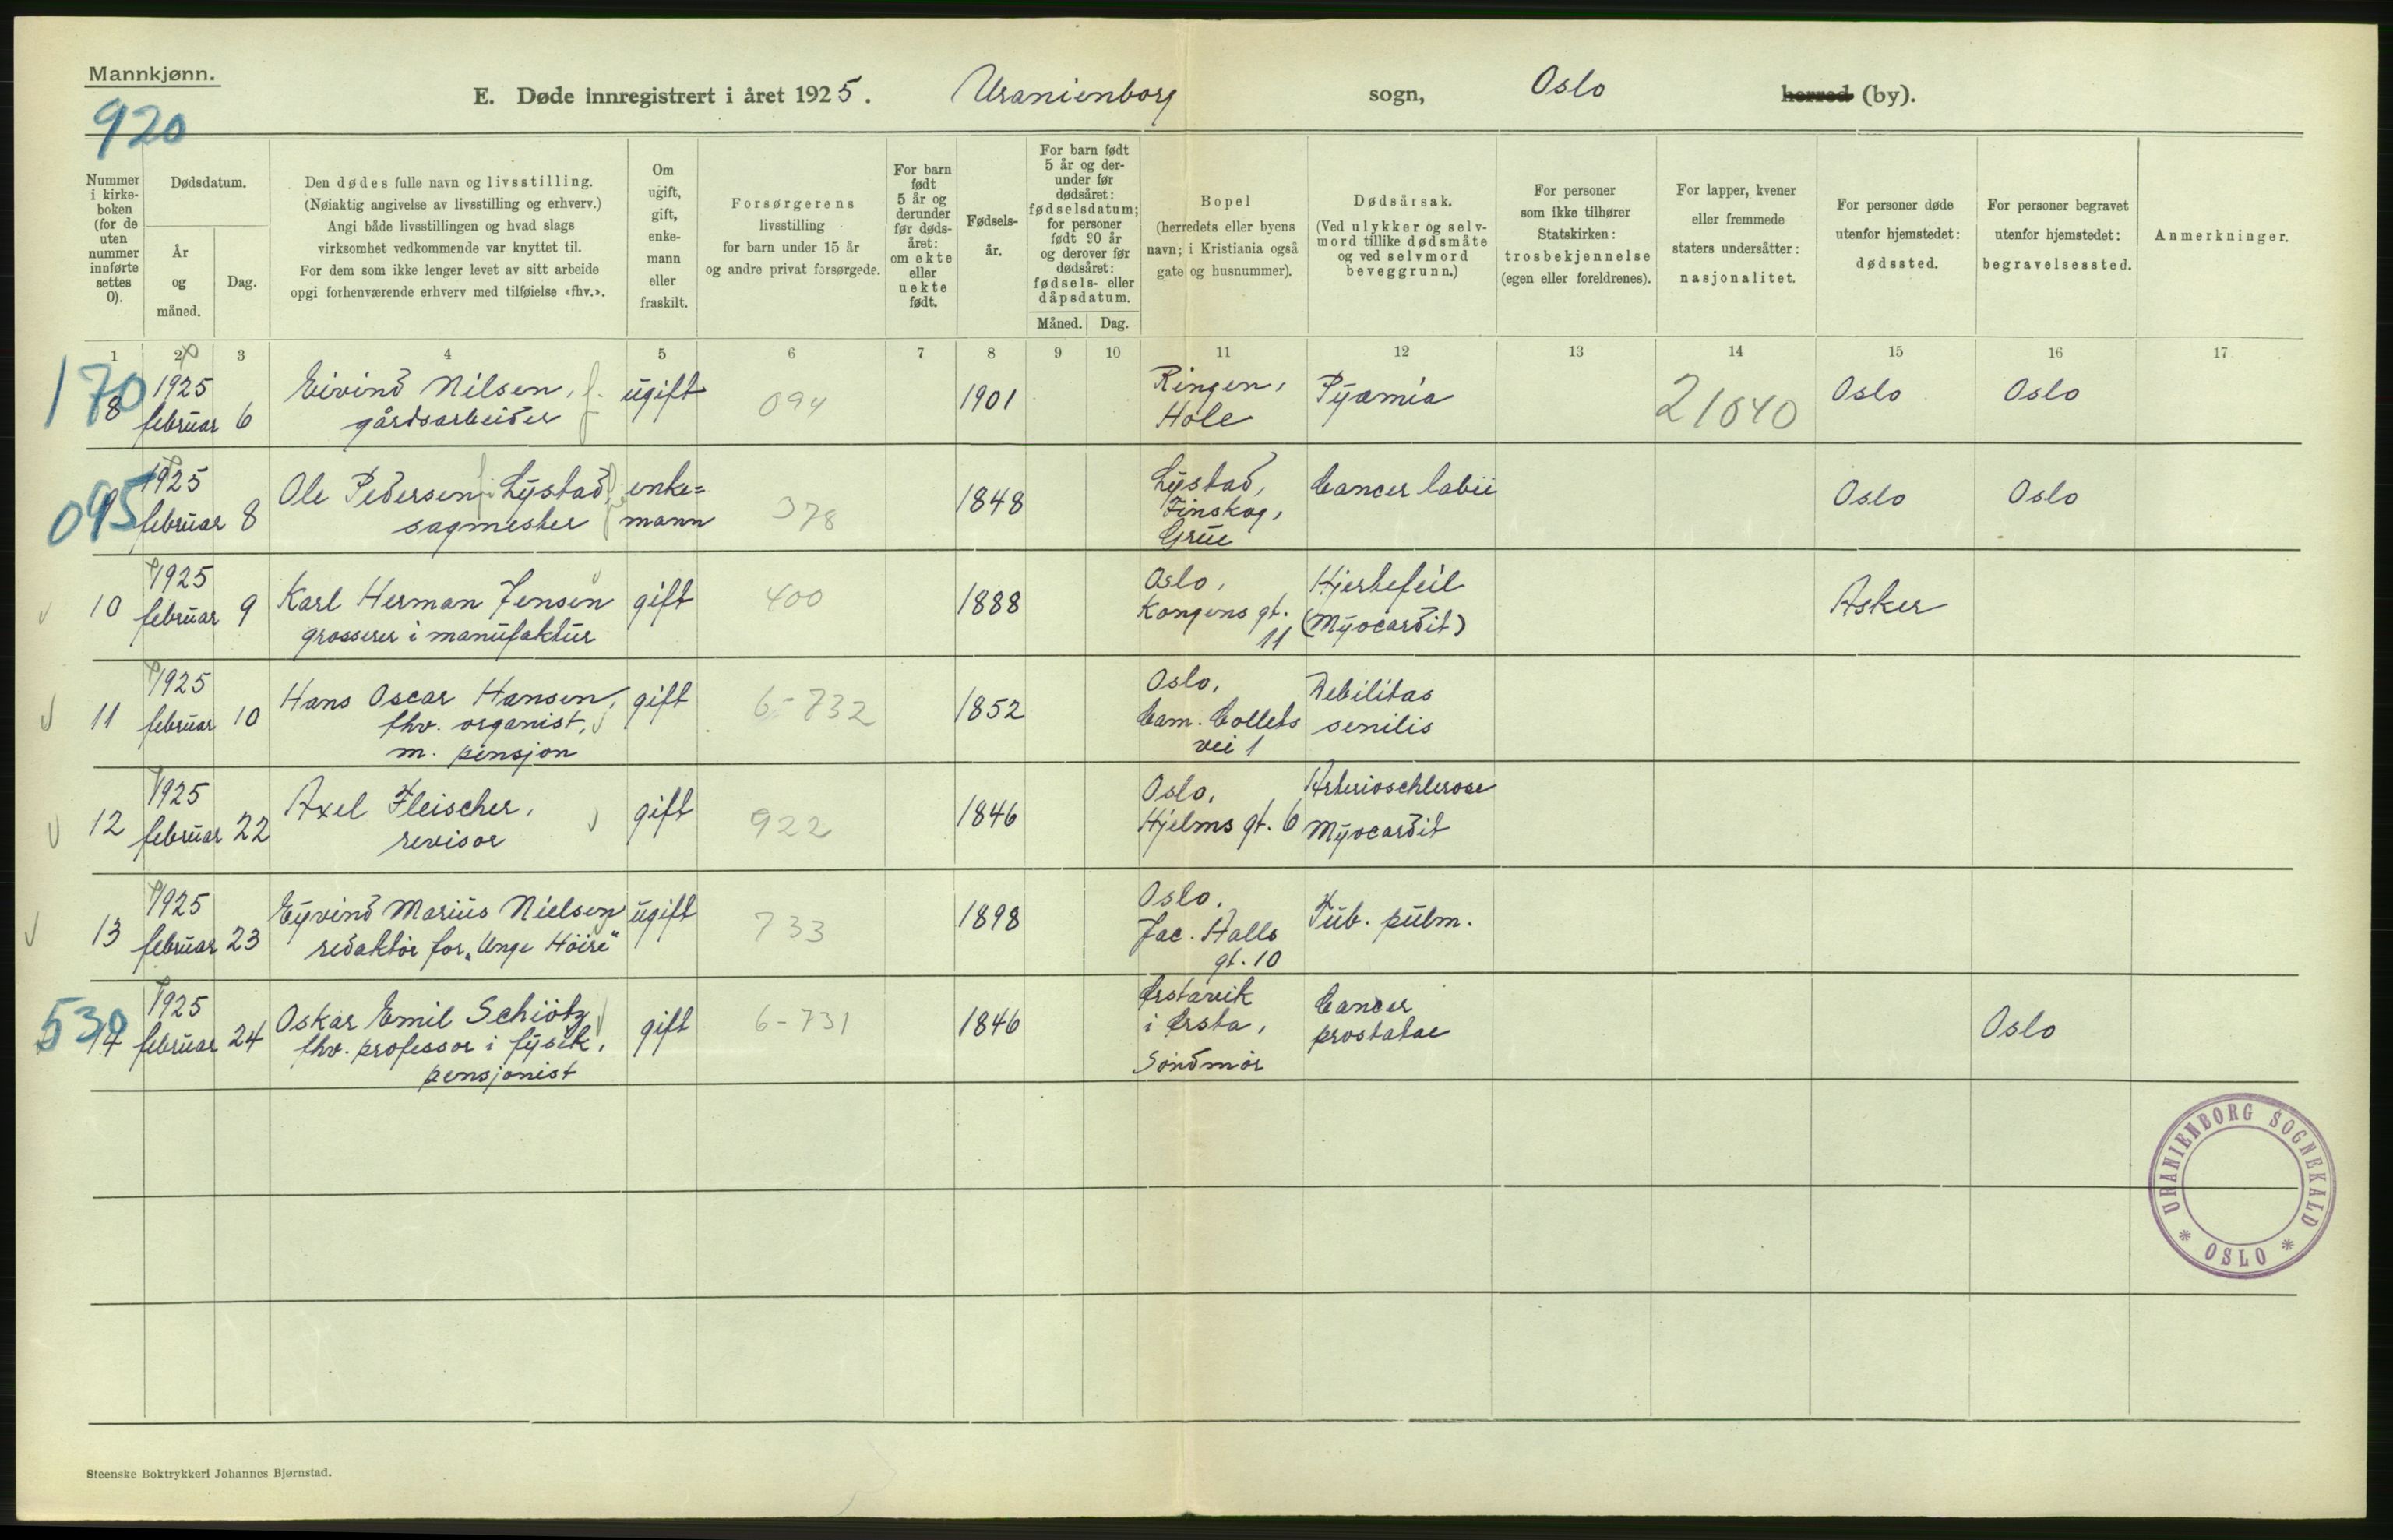 Mannkjønn.
920
E. Døde innregistrert i året 1925. Uranienborg sogn, Oslo herred (by).
Nummer i kirke- boken (for de uten nummer innførte settes 0).
Dødsdatum.
År og måned.
Dag.
Den dødes fulle navn og livsstilling.
(Nøiaktig angivelse av livsstilling og erhverv.)
Angi både livsstillingen og hvad slags
virksomhet vedkommende var knyttet til.
For dem som ikke lenger levet av sitt arbeide
opgi forhenværende erhverv med tilføielse «fhv.».
Om ugift, gift, enke- mann eller fraskilt.
Forsørgerens
livsstilling
for barn under 15 år
og andre privat forsørgede.
For barn født 5 år og derunder før døds- året: om ekte eller uekte født.
Fødsels- år.
For barn født 5 år og der- under før dødsåret: fødselsdatum; for personer født 90 år og derover før dødsåret: fødsels- eller dåpsdatum.
Måned. Dag.
Bopel
(herredets eller byens
navn; i Kristiania også
gate og husnummer).
Dødsårsak.
(Ved ulykker og selv-
mord tillike dødsmåte
og ved selvmord
beveggrunn.)
For personer
som ikke tilhører
Statskirken:
trosbekjennelse
(egen eller foreldrenes).
For lapper, kvener
eller fremmede
staters undersåtter:
nasjonalitet.
For personer døde
utenfor hjemstedet:
dødssted.
For personer begravet
utenfor hjemstedet:
begravelsessted.
Anmerkninger.
1 2 3 4 5 6 7 8 9 10 11 12 13 14 15 16 17
170
8 1925 februar 6
Eivind Nilsen,
gårdsarbeider
ugift 094 1901
Ringen,
Hole
Pyæmia 21040 Oslo Oslo
095
1925 februar 8
Ole Pedersen Lystad,
sagmester
enke=
mann
378 1848
Lystad,
Finskog,
Grue
Cancer labii Oslo Oslo
10 1925 februar 9
Karl Herman Jensen
grosserer i manufaktur
gift 400 1888
Oslo,
Kongens gt.
11
Hjertefeil
(Myocardit)
Asker
11 1925 februar 10
Hans Oscar Hansen,
fhv. organist,
m. pensjon
gift 6-732 1852
Oslo,
Cam. Colletts
vei 1
Debilitas
senilis
12 1925 februar 22
Axel Fleischer,
revisor
gift 922 1846
Oslo,
Hjelms gt. 6
Arterioschlerose
Myocardit
13 1925 februar 23
Eyvind Marius Nielsen
redaktør for „Unge Höire"
ugift 733 1898
Oslo,
Jac. Halls
gt. 10
Tub. pulm.
14 1925 februar 24
Oskar Emil Schiötz
fhv. professor i fysik,
pensjonist
gift 6-731 1846
Ørstavik
i Ørsta,
Söndmör
Cancer
prostatae
Oslo
URANIENBORG SOGNEKALD
* OSLO *
Steenske Boktrykkeri Johannes Bjørnstad.